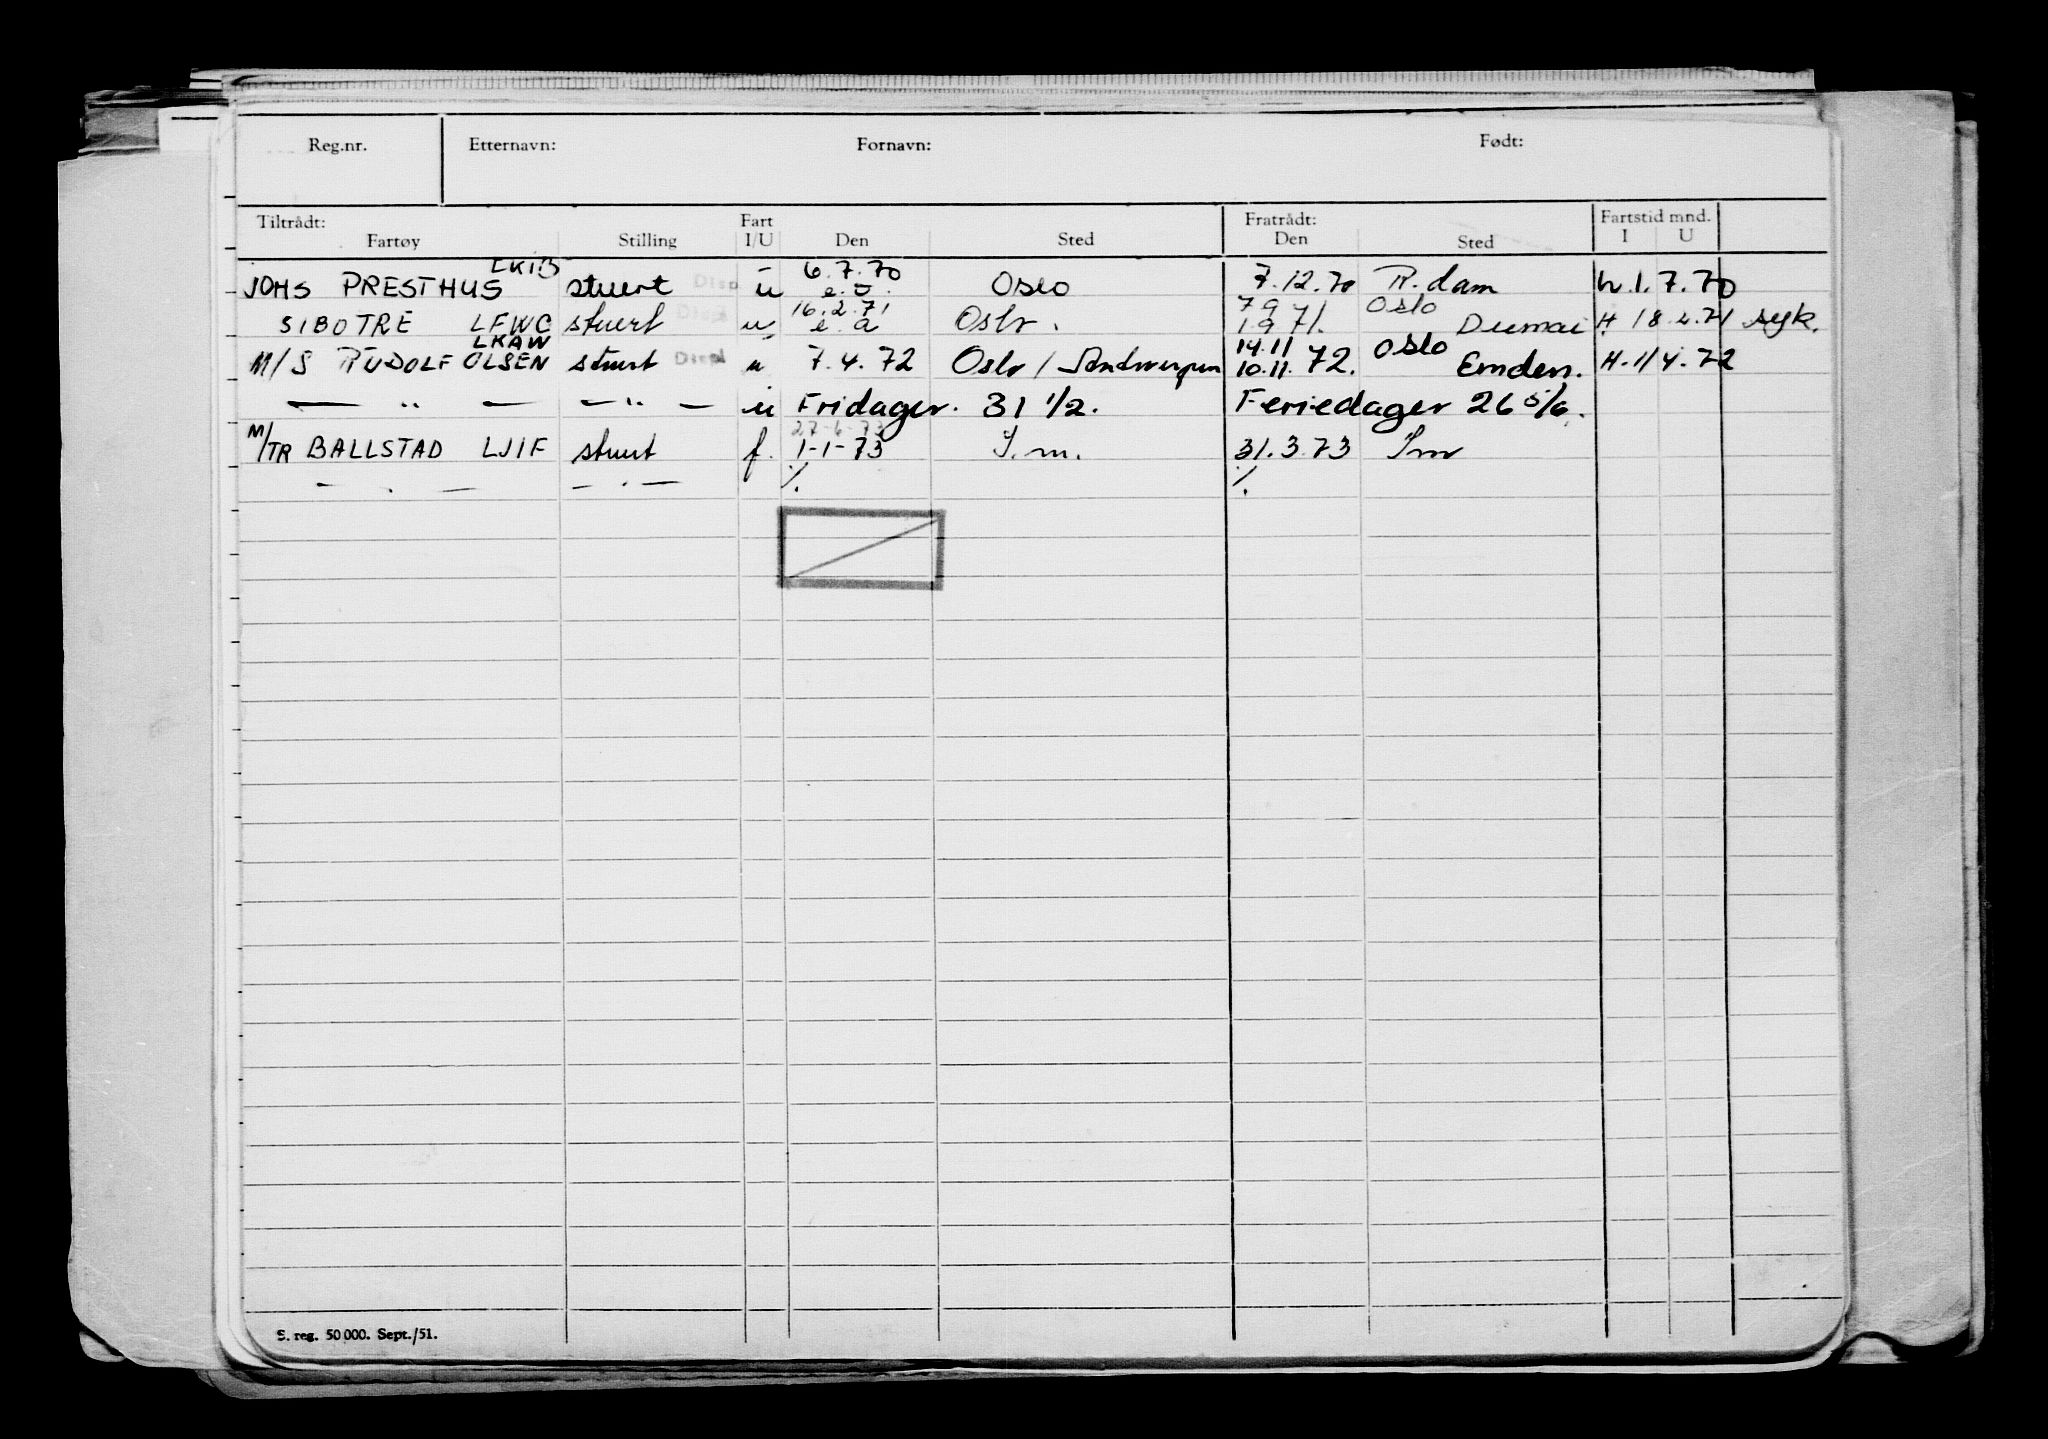 Reg.nr. Etternavn: Fornavn: Født:
Tiltrådt: Fart Fratrådt: Fartstid mnd.
Fartøy Stilling I/U Den Sted Den Sted I U
LKIB 6.7.70
JOHS PRESTHUS stuert Disp u e.o. Oslo 7.12.70 R.dam h.1.7.70
16.2.71 7 9 Oslo
SIBOTRE LFWC stuert Disp u e.a Oslo. 1 9 71. Dumai H 18.2.71 syk.
LKAW 14.11 Oslo
M/S RUDOLF OLSEN stuert Disp u 7.4.72 Oslo / Andwerpen 10.11.72. Emden. H.1/4.72
— " — — " — u Fridager. 31 1/2. Feriedager 26 5/6.
27-6-73
M/TR BALLSTAD LJIF stuert f. 1-1-73 I.m. 31.3.73 Im
— . — — . — %. %.
S. reg. 50 000. Sept./51.